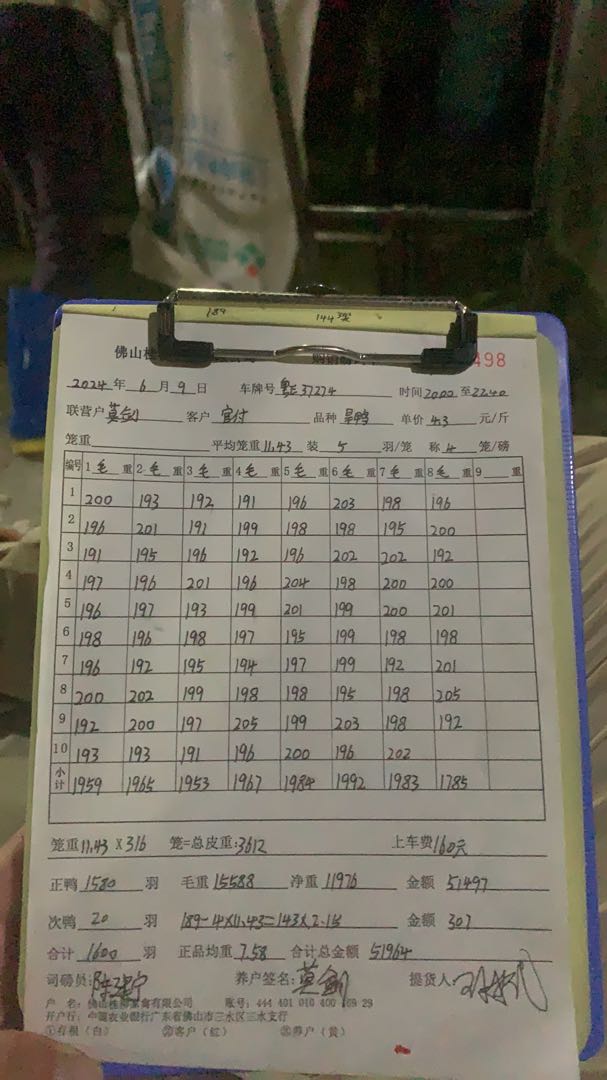 189 144
佛山桂
498
2024 年 6 月 9 日 车牌号 粤E37274 时间 2000 至 22.40
联营户 莫剑 客户 宜付 品种 旱鸭 单价 4.3 元/斤
笼重 平均笼重 11.43 装 5 羽/笼 称 4 笼/磅
编号 1 毛 重 2 毛 重 3 毛 重 4 毛 重 5 毛 重 6 毛 重 7 毛 重 8 毛 重 9 重
1 200 193 192 191 196 203 198 196
2 196 201 191 199 198 198 195 200
3 191 195 196 192 196 202 202 192
4 197 196 201 196 204 198 200 200
5 196 197 193 199 201 199 200 201
6 198 196 198 197 195 199 198 198
7 196 192 195 194 197 199 192 201
8 200 202 199 198 198 195 198 205
9 192 200 197 205 199 203 198 192
10 193 193 191 196 200 196 202
小计 1959 1965 1953 1967 1984 1992 1983 1785
笼重 11.43 X 316 笼=总皮重: 3612 上车费 160元
正鸭 1580 羽 毛重 15588 净重 11976 金额 51497
次鸭 20 羽 189-4X11.43=143X2.15 金额 307
合计 1600 羽 正品均重 7.58 合计总金额 51964
司磅员: 养户签名: 莫剑 提货人:
户 名: 佛山桂 禽有限公司 账号: 444 401 010 400 69 29
开户行: 中国农业银行广东省佛山市三水区三水支行
①存根(白) ②客户(红) ③养户(黄)